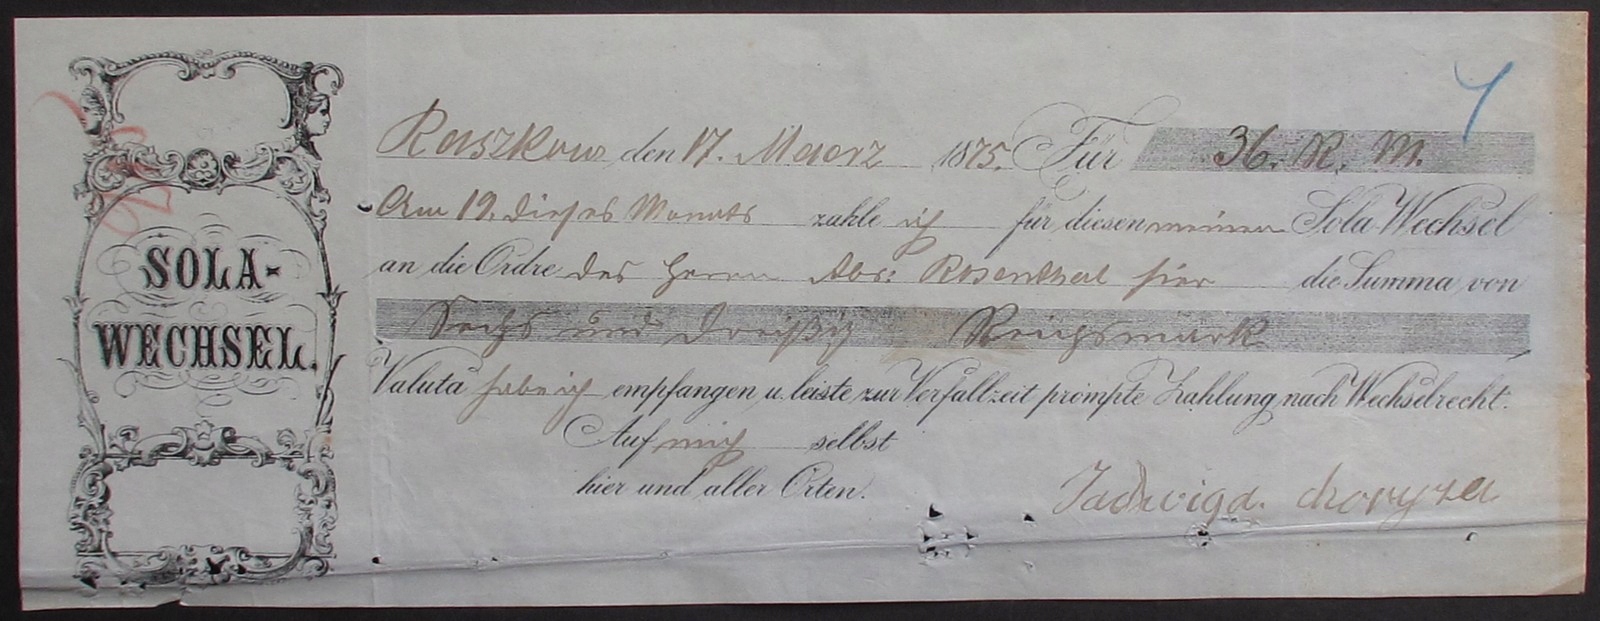 SOLA-
WECHSEL.
Raszkow den 17. Maerz 1875. Für 36. R. M.
Am 19. dieses Monats zahle ich für diesen meinen Sola-Wechsel
an die Ordre des Herrn Abr: Rosenthal hier die Summa von
Sechs und dreißig Reichsmark
Valuta habe ich empfangen u. leiste zur Verfallzeit prompte Zahlung nach Wechselrecht.
Auf mich selbst
hier und aller Orten.
Jadwiga